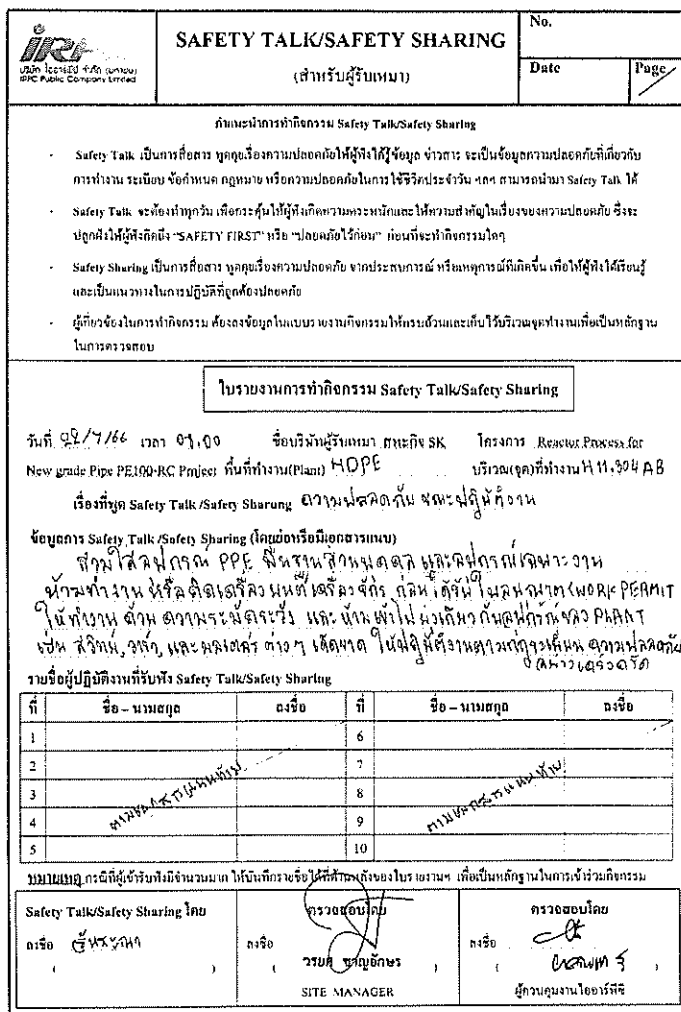 IRPC
บริษัท ไออาร์พีซี จำกัด (มหาชน)
IRPC Public Company Limited
SAFETY TALK/SAFETY SHARING
(สำหรับผู้รับเหมา)
No.
Date
Page
คำแนะนำการทำกิจกรรม Safety Talk/Safety Sharing
- Safety Talk เป็นการสื่อสาร พูดคุยเรื่องความปลอดภัยให้ผู้ฟังได้รู้ข้อมูล ข่าวสาร จะเป็นข้อมูลความปลอดภัยที่เกี่ยวกับ
การทำงาน ระเบียบ ข้อกำหนด กฎหมาย หรือความปลอดภัยในการใช้ชีวิตประจำวัน ฯลฯ สามารถนำมา Safety Talk ได้
- Safety Talk จะต้องทำทุกวัน เพื่อกระตุ้นให้ผู้ฟังเกิดความตระหนักและให้ความสำคัญในเรื่องของความปลอดภัย ซึ่งจะ
ปลูกฝังให้ผู้ฟังคิดถึง “SAFETY FIRST” หรือ “ปลอดภัยไว้ก่อน” ก่อนที่จะทำกิจกรรมใดๆ
- Safety Sharing เป็นการสื่อสาร พูดคุยเรื่องความปลอดภัย จากประสบการณ์ หรือเหตุการณ์ที่เกิดขึ้น เพื่อให้ผู้ฟังได้เรียนรู้
และเป็นแนวทางในการปฏิบัติที่ถูกต้องปลอดภัย
- ผู้เกี่ยวข้องในการทำกิจกรรม ต้องลงข้อมูลในแบบรายงานกิจกรรมให้ครบถ้วนและเก็บไว้บริเวณจุดทำงานเพื่อเป็นหลักฐาน
ในการตรวจสอบ
ใบรายงานการทำกิจกรรม Safety Talk/Safety Sharing
วันที่ /7/66 เวลา .00 ชื่อบริษัทผู้รับเหมา สหะกิจ SK โครงการ Reactor Process for
New grade Pipe PE100-RC Project พื้นที่ทำงาน(Plant) HDPE บริเวณ(จุด)ที่ทำงาน H11.304 AB
เรื่องที่พูด Safety Talk /Safety Sharung ความปลอดภัย ขณะปฏิบัติงาน
ข้อมูลการ Safety Talk /Safety Sharing (โดยย่อหรือมีเอกสารแนบ)
สวมใส่อุปกรณ์ PPE พื้นฐานส่วนบุคคล และอุปกรณ์เฉพาะงาน
ห้ามทำงาน หรือติดเครื่องยนต์เครื่องจักร ก่อนได้รับใบอนุญาต (WORK PERMIT
ให้ทำงาน ด้วย ความระมัดระวัง และ ห้ามเข้าไปยุ่งเกี่ยวกับอุปกรณ์ของ PLANT
เช่น สวิทช์, วาล์ว, และ มอเตอร์ ต่างๆ เด็ดขาด ให้ปฏิบัติงานตามกฎระเบียบ ความปลอดภัย
อย่างเคร่งครัด
รายชื่อผู้ปฏิบัติงานที่รับฟัง Safety Talk/Safety Sharing
ที่ ชื่อ – นามสกุล ลงชื่อ ที่ ชื่อ – นามสกุล ลงชื่อ
1 6
2 7
3 ตามเอกสารแนบท้าย 8 ตามเอกสารแนบท้าย
4 9
5 10
หมายเหตุ กรณีที่ผู้เข้ารับฟังมีจำนวนมาก ให้บันทึกรายชื่อได้ที่ด้านหลังของใบรายงานฯ เพื่อเป็นหลักฐานในการเข้าร่วมกิจกรรม
Safety Talk/Safety Sharing โดย ตรวจสอบโดย ตรวจสอบโดย
ลงชื่อ ลงชื่อ ลงชื่อ
( ) ( วรยศ ชาญอักษร ) ( )
SITE MANAGER ผู้ควบคุมงานไออาร์พีซี